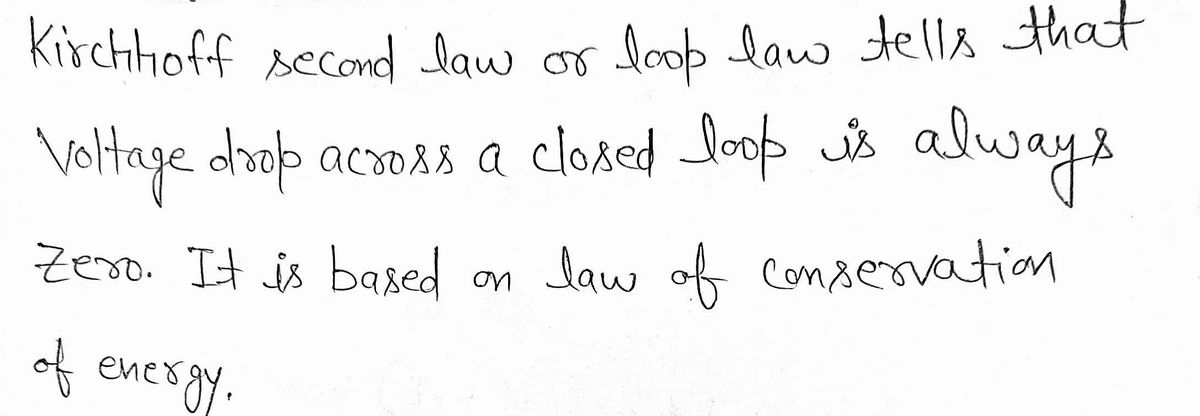 Kirchhoff second law or loop law tells that
Voltage drop across a closed loop is always
zero. It is based on law of conservation
of energy.